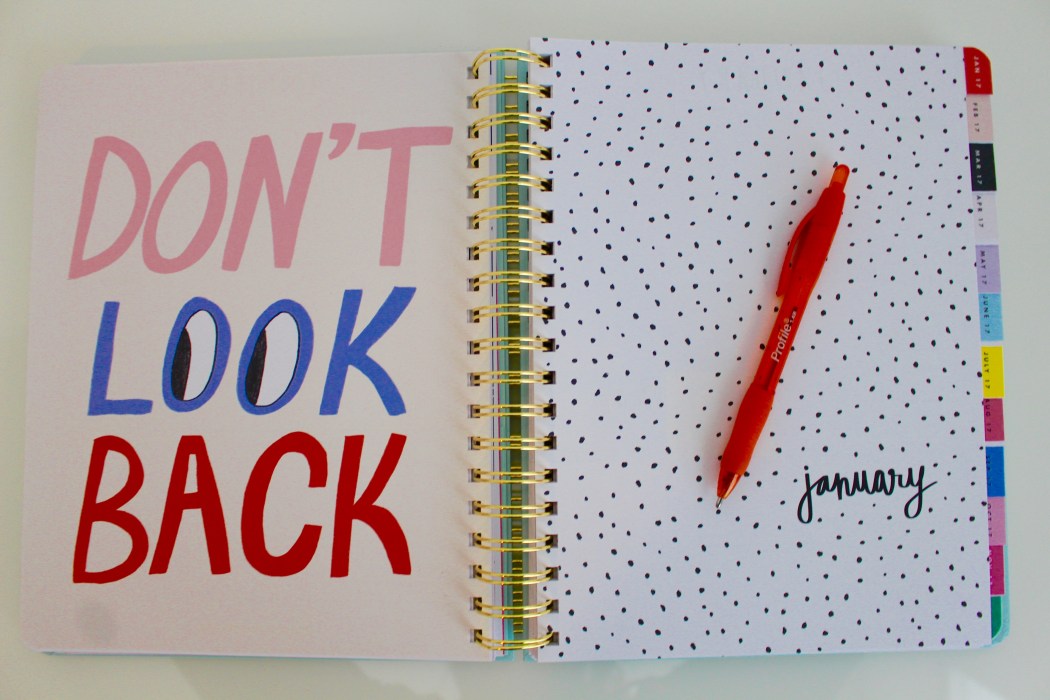 DON'T
LOOK
BACK
Profile
january
JAN 17
FEB 17
MAR 17
APR 17
MAY 17
JUNE 17
JULY 17
AUG 17
OCT 17